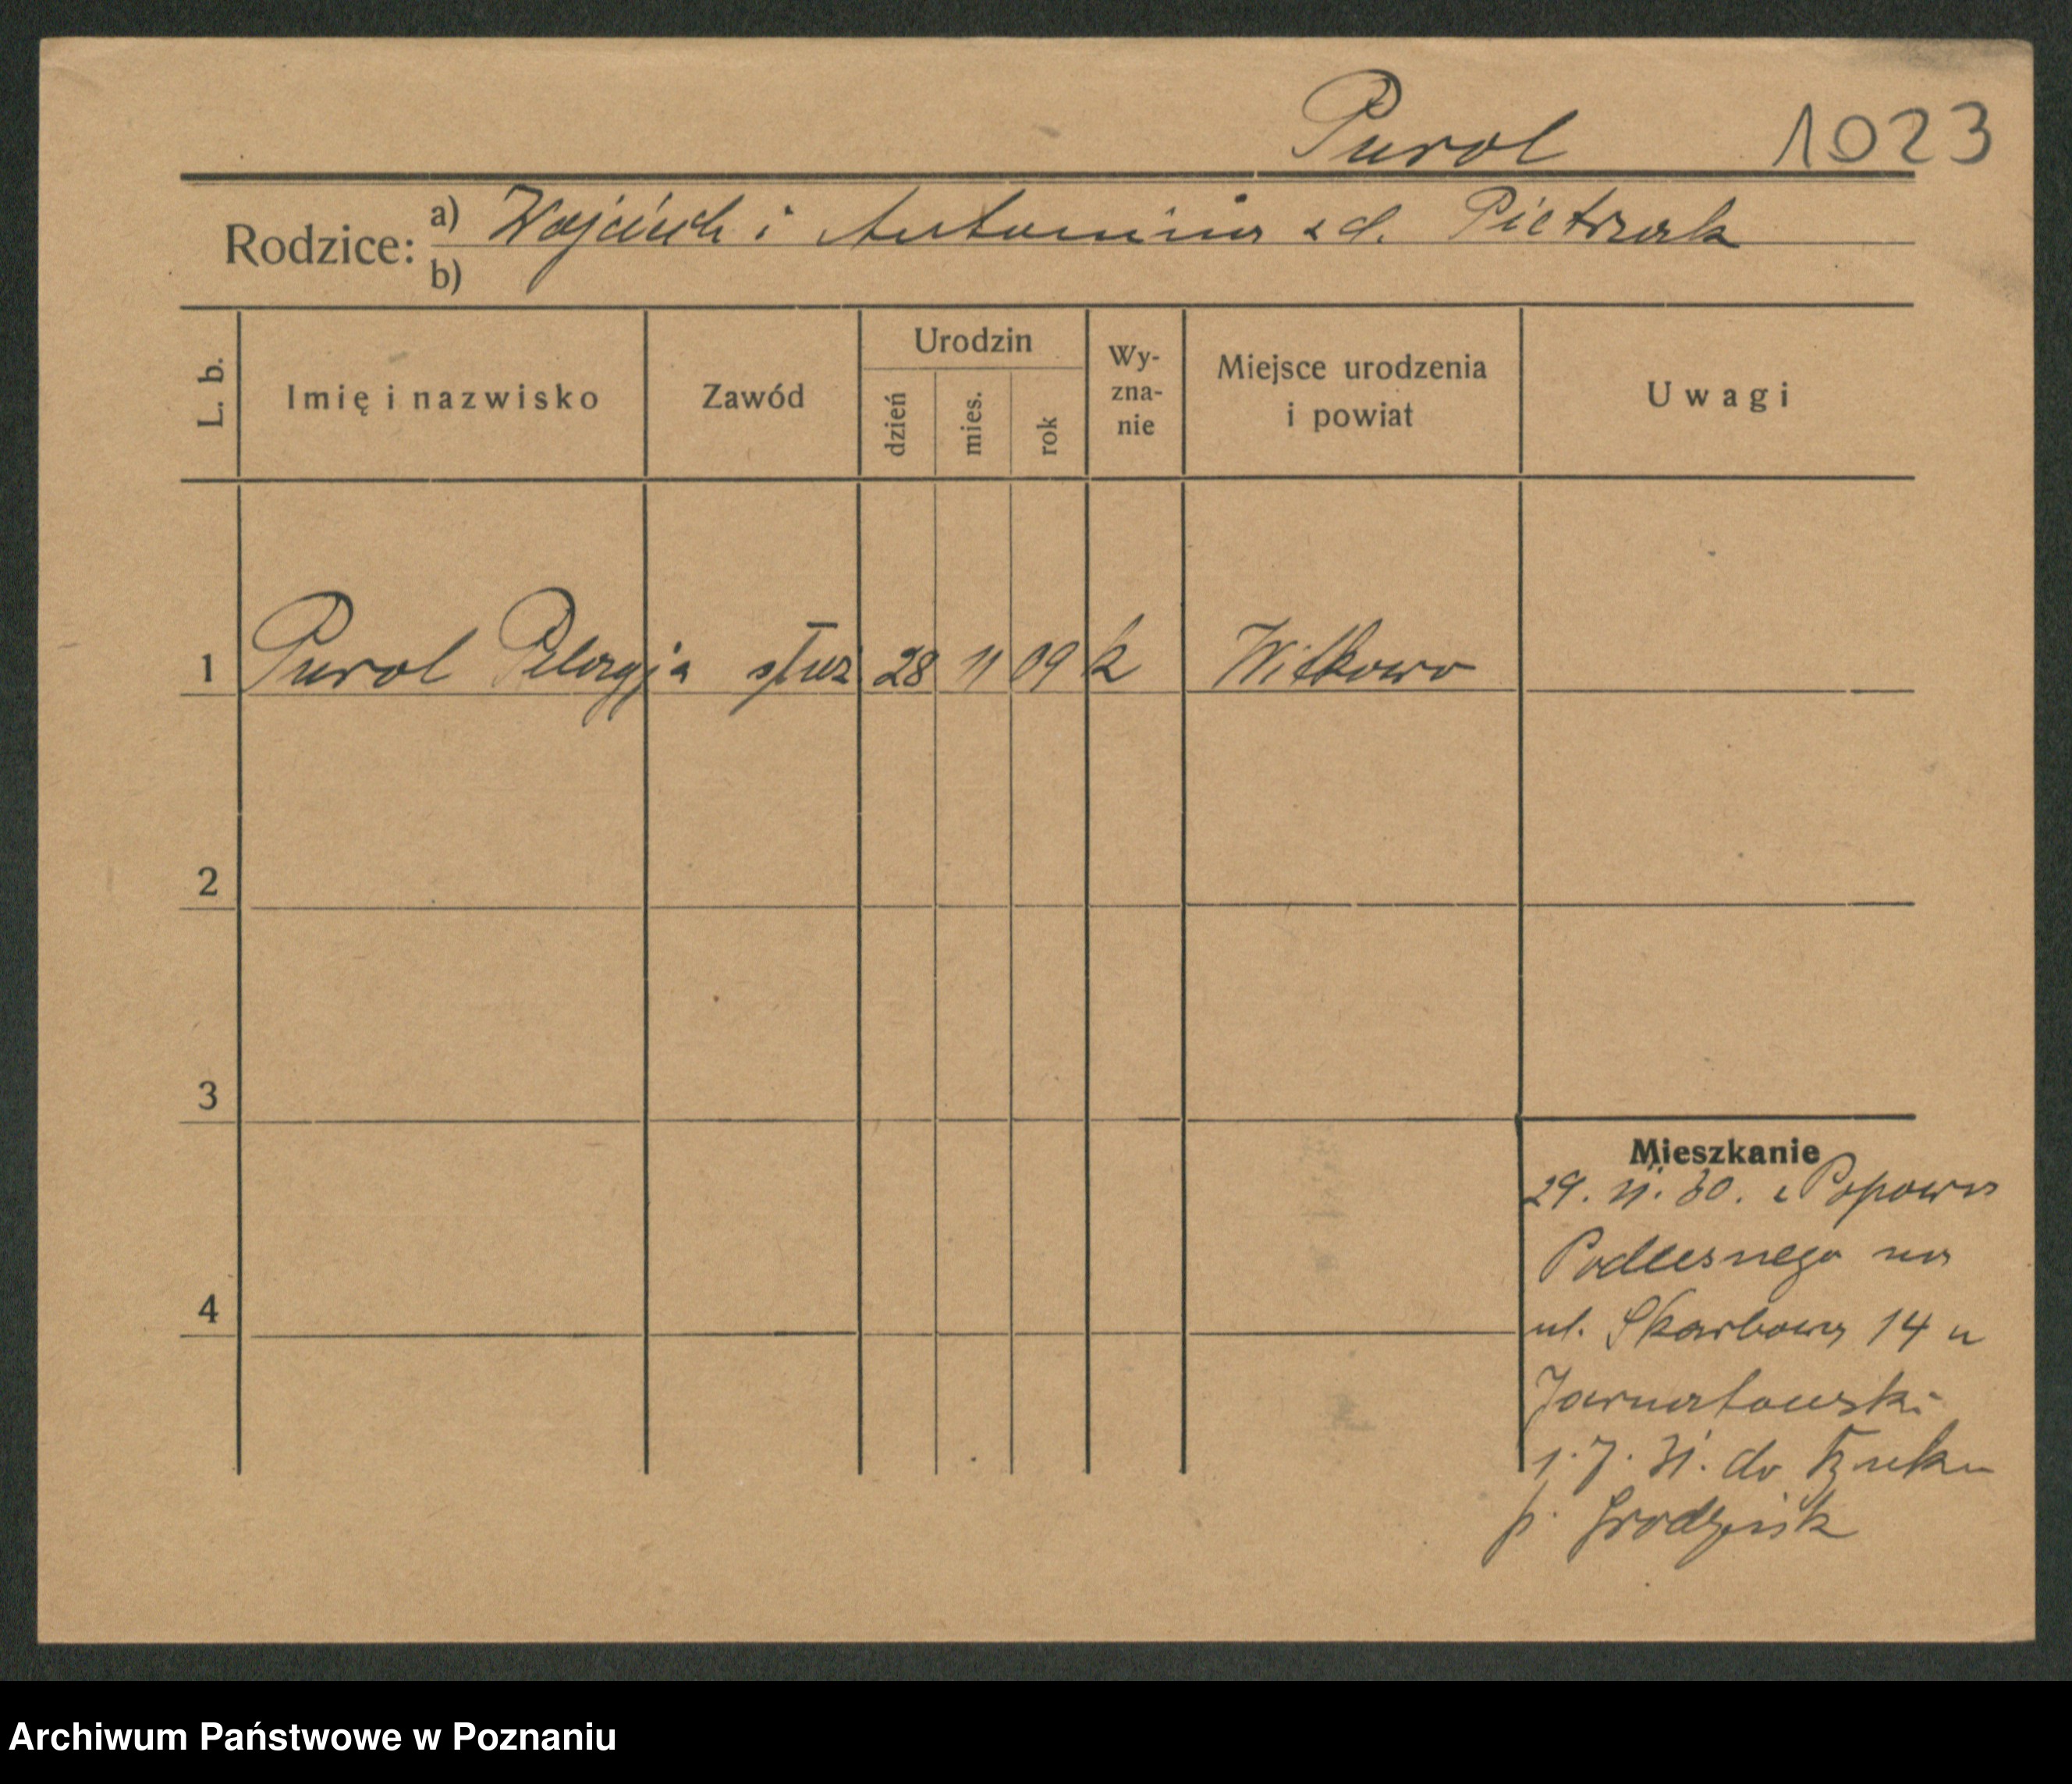 Purol 1023
Rodzice: a) Wojciech i Antonina zd. Pietrzak
b)
L. b. Imię i nazwisko Zawód Urodzin dzień mies. rok Wy-zna-nie Miejsce urodzenia i powiat Uwagi
1 Purol Pelagja służ 28 11 09 k Witkowo
2
3
4
Mieszkanie
29. XI. 30. z Popowa
Podleśnego na
ul. Skarbowa 14 u
1.7.31. do
p. Grodzisk
Archiwum Państwowe w Poznaniu